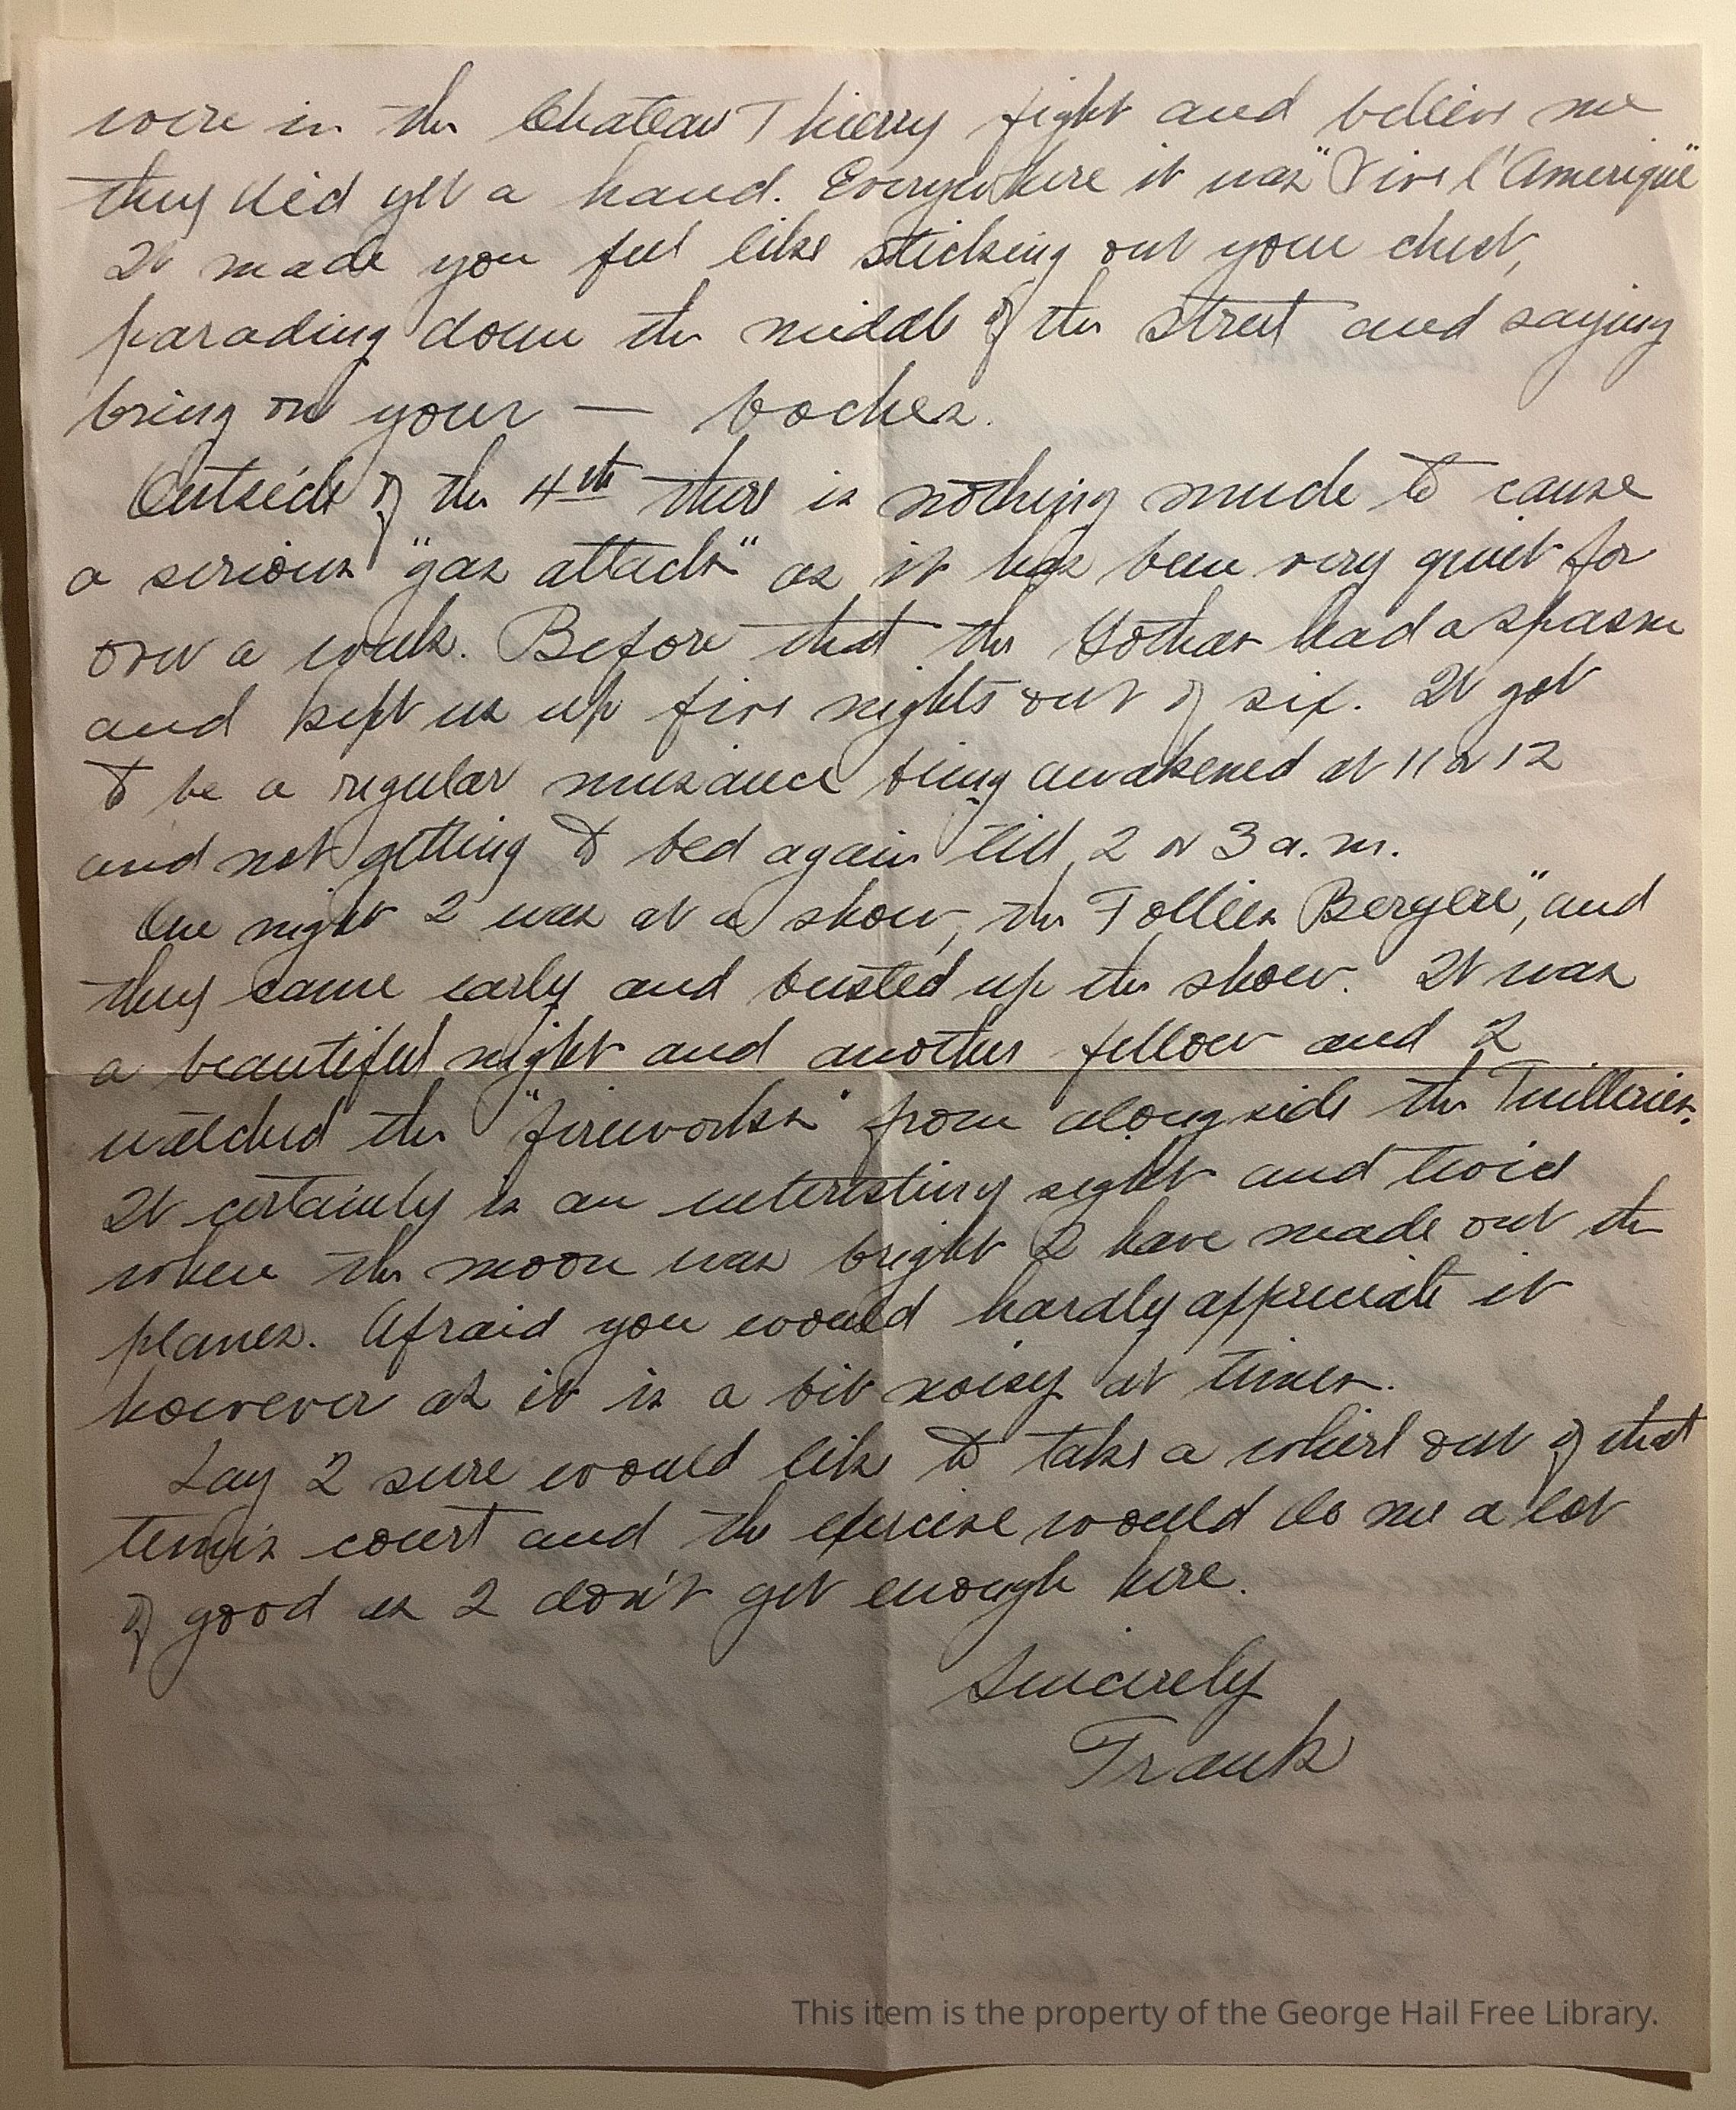 were in the Chateau Thierry fight and believe me
they did get a hand. Everywhere it was "Vive l'Amerique"
It made you feel like sticking out your chest,
parading down the middle of the street and saying
bring on your — boches.
Outside of the 4th there is nothing much to cause
a serious "gas attack" as it has been very quiet for
over a week. Before that the Gothas had a spasm
and kept us up five nights out of six. It got
to be a regular nuisance being awakened at 11 or 12
and not getting to bed again till 2 or 3 a.m.
One night I was at a show, the Follies Bergere", and
they came early and busted up the show. It was
a beautiful night and another fellow and I
watched the "fireworks" from alongside the Tuilleries.
It certainly is an interesting sight and twice
when the moon was bright I have made out the
planes. Afraid you would hardly appreciate it
however as it is a bit noisy at times.
Say I sure would like to take a whirl out of that
tennis court and the exercise would do me a lot
of good as I don't get enough here.
Sincerely
Frank
This item is the property of the George Hail Free Library.